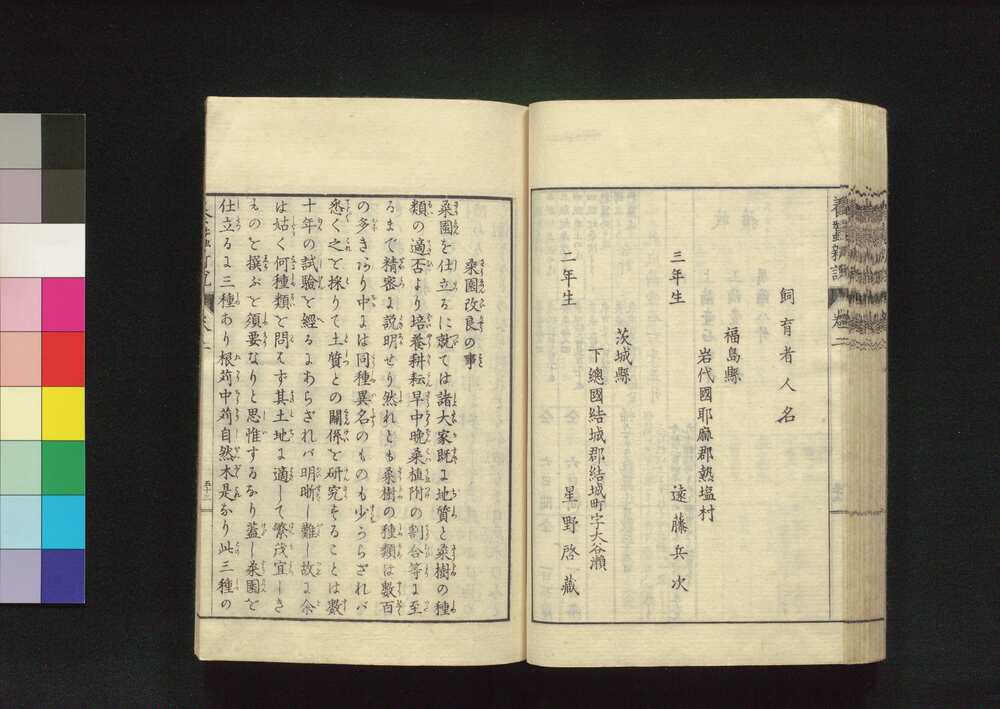 養蠶新論
卷二
飼育者人名
福島縣
岩代國耶麻郡熱塩村
三年生　遠藤兵次
茨城縣
下總國結城郡結城町字大谷瀬
二年生　星野啓藏
桒園改良の事
桒園を仕立るに就ては諸大家既に地質と桒樹の種
類の適否より培養耕耘早中晩桒植附の割合等に至
るまで精密に説明せり然れとも桒樹の種類は數百
の多きあり中には同種異名のものも少からざれバ
悉く之を採りて土質との關係を研究することは數
十年の試驗を經るにあらざれバ明晣し難し故に余
は姑く何種類を問はず其土地に適して繁茂宜しき
ものを撰ぶを須要なりと思惟するなり蓋し桒園を
仕立るに三種あり根苅中苅自然木是なり此三種の